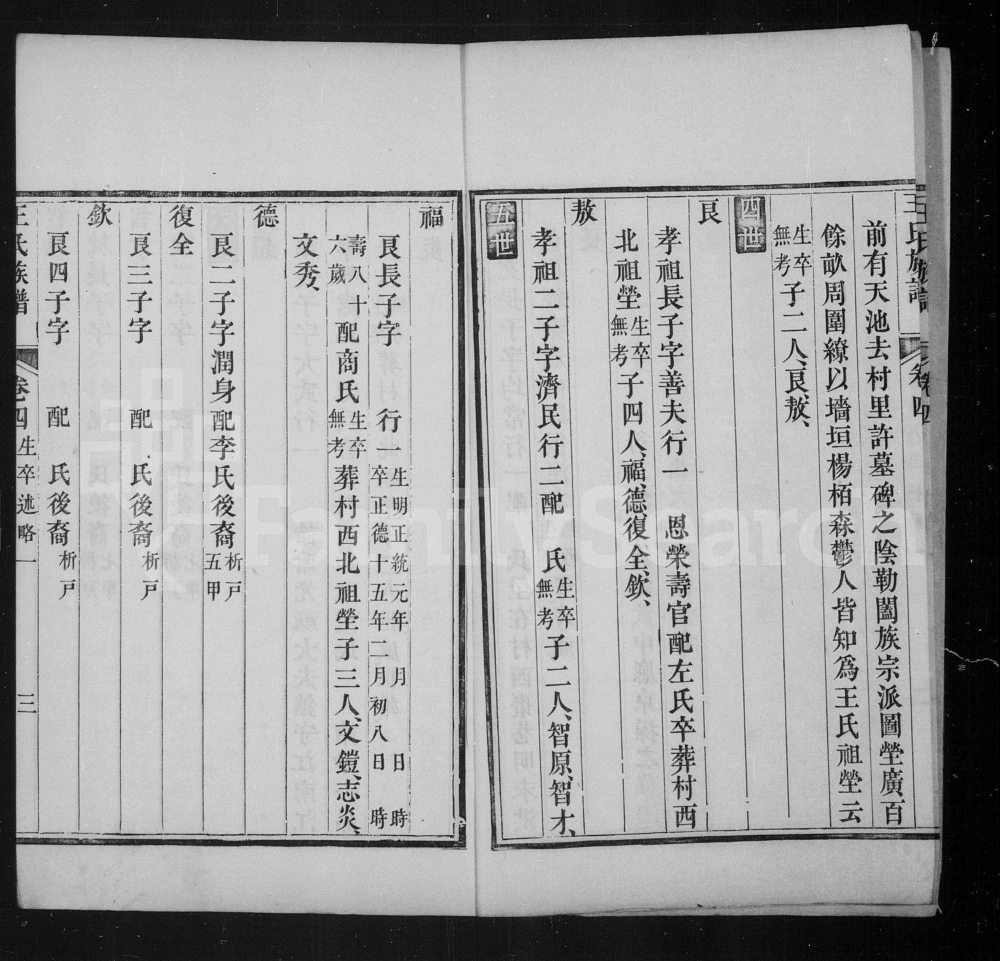 王氏族譜 卷四
前有天池去村里許墓碑之陰勒闔族宗派圖塋廣百
餘畝周圍繚以墻垣楊栢森鬱人皆知爲王氏祖塋云
生卒無考子二人、艮、敖、
四世
艮
孝祖長子字善夫行一 恩榮壽官配左氏卒葬村西
北祖塋生卒無考子四人、福、德、復全、欽、
敖
孝祖二子字濟民行二配 氏生卒無考子二人、智原、智才、
五世
福
艮長子字 行一生明正統元年 月 日 時卒正德十五年二月初八日 時
壽八十六歲配商氏生卒無考葬村西北祖塋子三人、文鎧、志炎、
文秀、
德
艮二子字潤身配李氏後裔析戸五甲
復全
艮三子字 配 氏後裔析戸
欽
艮四子字 配 氏後裔析戸
王氏族譜 卷四 生卒述略一 三
FamilySearch